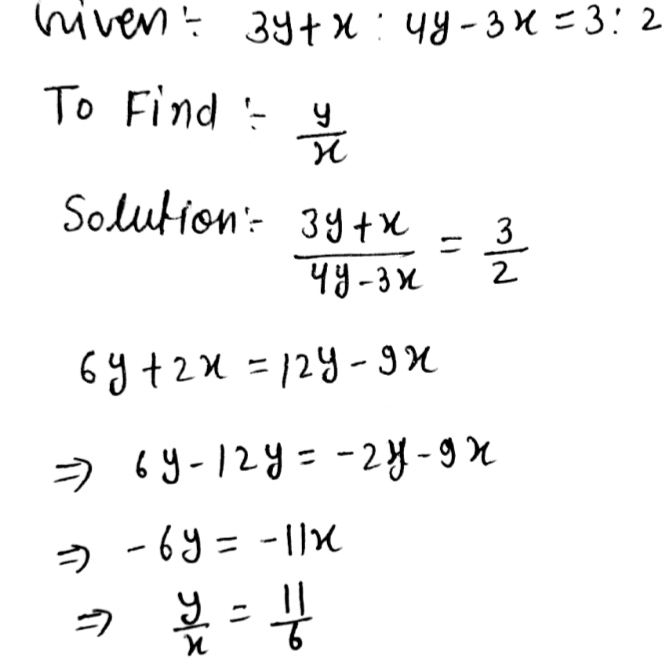 Given :- 3y+x : 4y-3x = 3:2
To Find :- y/x
Solution:- (3y+x)/(4y-3x) = 3/2
6y+2x = 12y-9x
⇒ 6y-12y = -2y-9x
⇒ -6y = -11x
⇒ y/x = 11/6